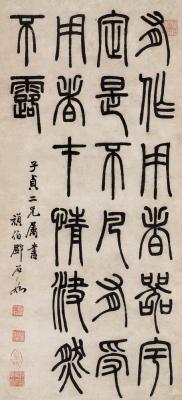 有作用者器宇
定是不凡有受
用者才情決然
不露
子貞二兄屬書
頑伯鄧石如